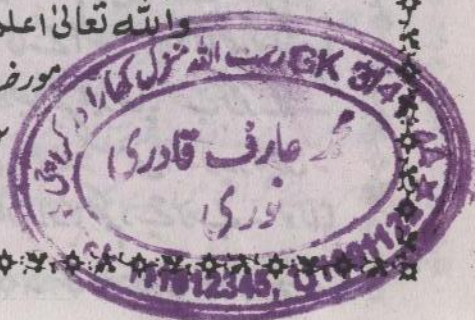 واللہ تعالیٰ اعلم
مورخہ
رحمت اللہ منزل کھارا در کراچی
GK 3/4
محمد عارف قادری
نوری